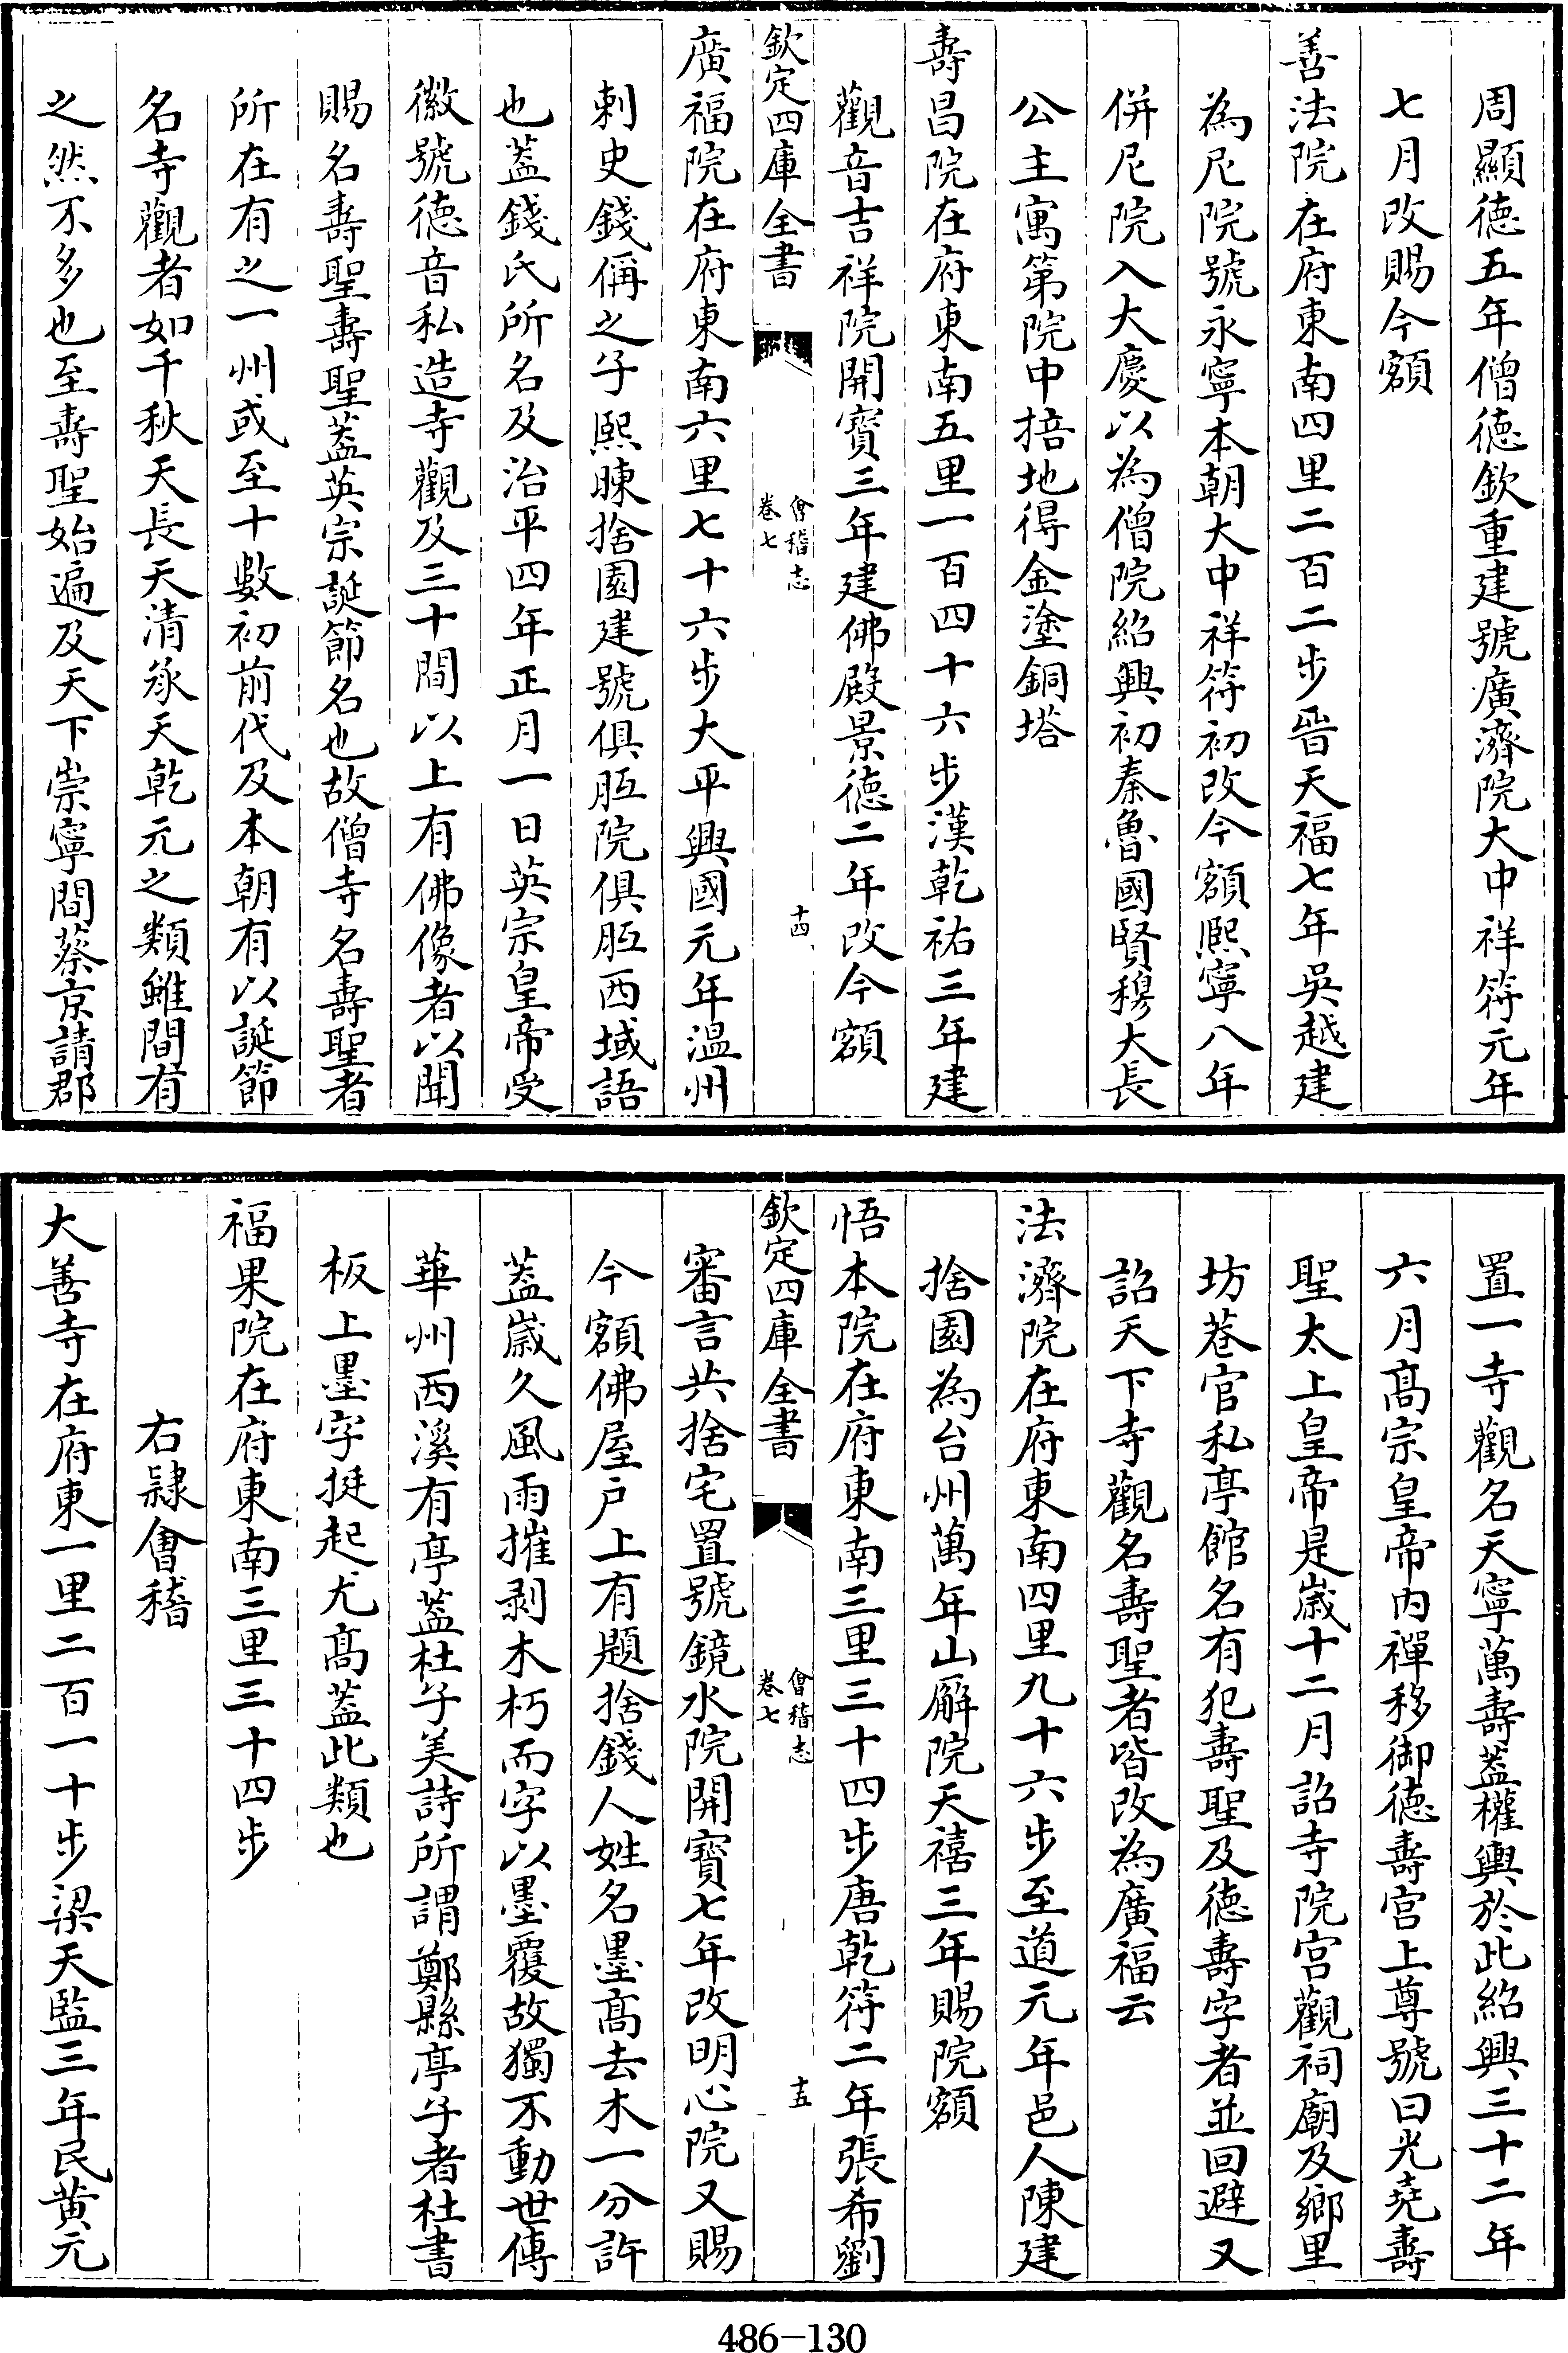 周顯徳五年僧徳欽重建號廣濟院大中祥符元年
七月改賜今額
善法院在府東南四里二百二步晉天福七年吳越建
為尼院號永寧本朝大中祥符初改今額熙寧八年
併尼院入大慶以為僧院紹興初秦魯國賢穆大長
公主寓第院中掊地得金塗銅塔
壽昌院在府東南五里一百四十六步漢乾祐三年建
觀音吉祥院開寶三年建佛殿景徳二年改今額
欽定四庫全書
會稽志
卷七
十四
廣福院在府東南六里七十六步大平興國元年温州
刺史錢偁之子熙暕捨園建號俱胝院俱胝西域語
也葢錢氏所名及治平四年正月一日英宗皇帝受
徽號徳音私造寺觀及三十間以上有佛像者以聞
賜名壽聖壽聖葢英宗誕節名也故僧寺名壽聖者
所在有之一州或至十數初前代及本朝有以誕節
名寺觀者如千秋天長天清承天乾元之類雖間有
之然不多也至壽聖始遍及天下崇寧間蔡京請郡
置一寺觀名天寧萬壽葢權輿於此紹興三十二年
六月髙宗皇帝内禪移御徳壽宫上尊號曰光堯壽
聖太上皇帝是嵗十二月詔寺院宫觀祠廟及鄉里
坊巷官私亭館名有犯壽聖及徳壽字者並回避又
詔天下寺觀名壽聖者皆改為廣福云
法濟院在府東南四里九十六步至道元年邑人陳建
捨園為台州萬年山廨院天禧三年賜院額
悟本院在府東南三里三十四步唐乾符二年張希劉
欽定四庫全書
會稽志
卷七
十五
審言共捨宅置號鏡水院開寶七年改明心院又賜
今額佛屋戸上有題捨錢人姓名墨髙去木一分許
葢嵗久風雨摧剥木朽而字以墨覆故獨不動世傳
華州西溪有亭葢杜子美詩所謂鄭縣亭子者杜書
板上墨字挺起尤髙葢此類也
福果院在府東南三里三十四步
右隷會稽
大善寺在府東一里二百一十步梁天監三年民黄元
486-130